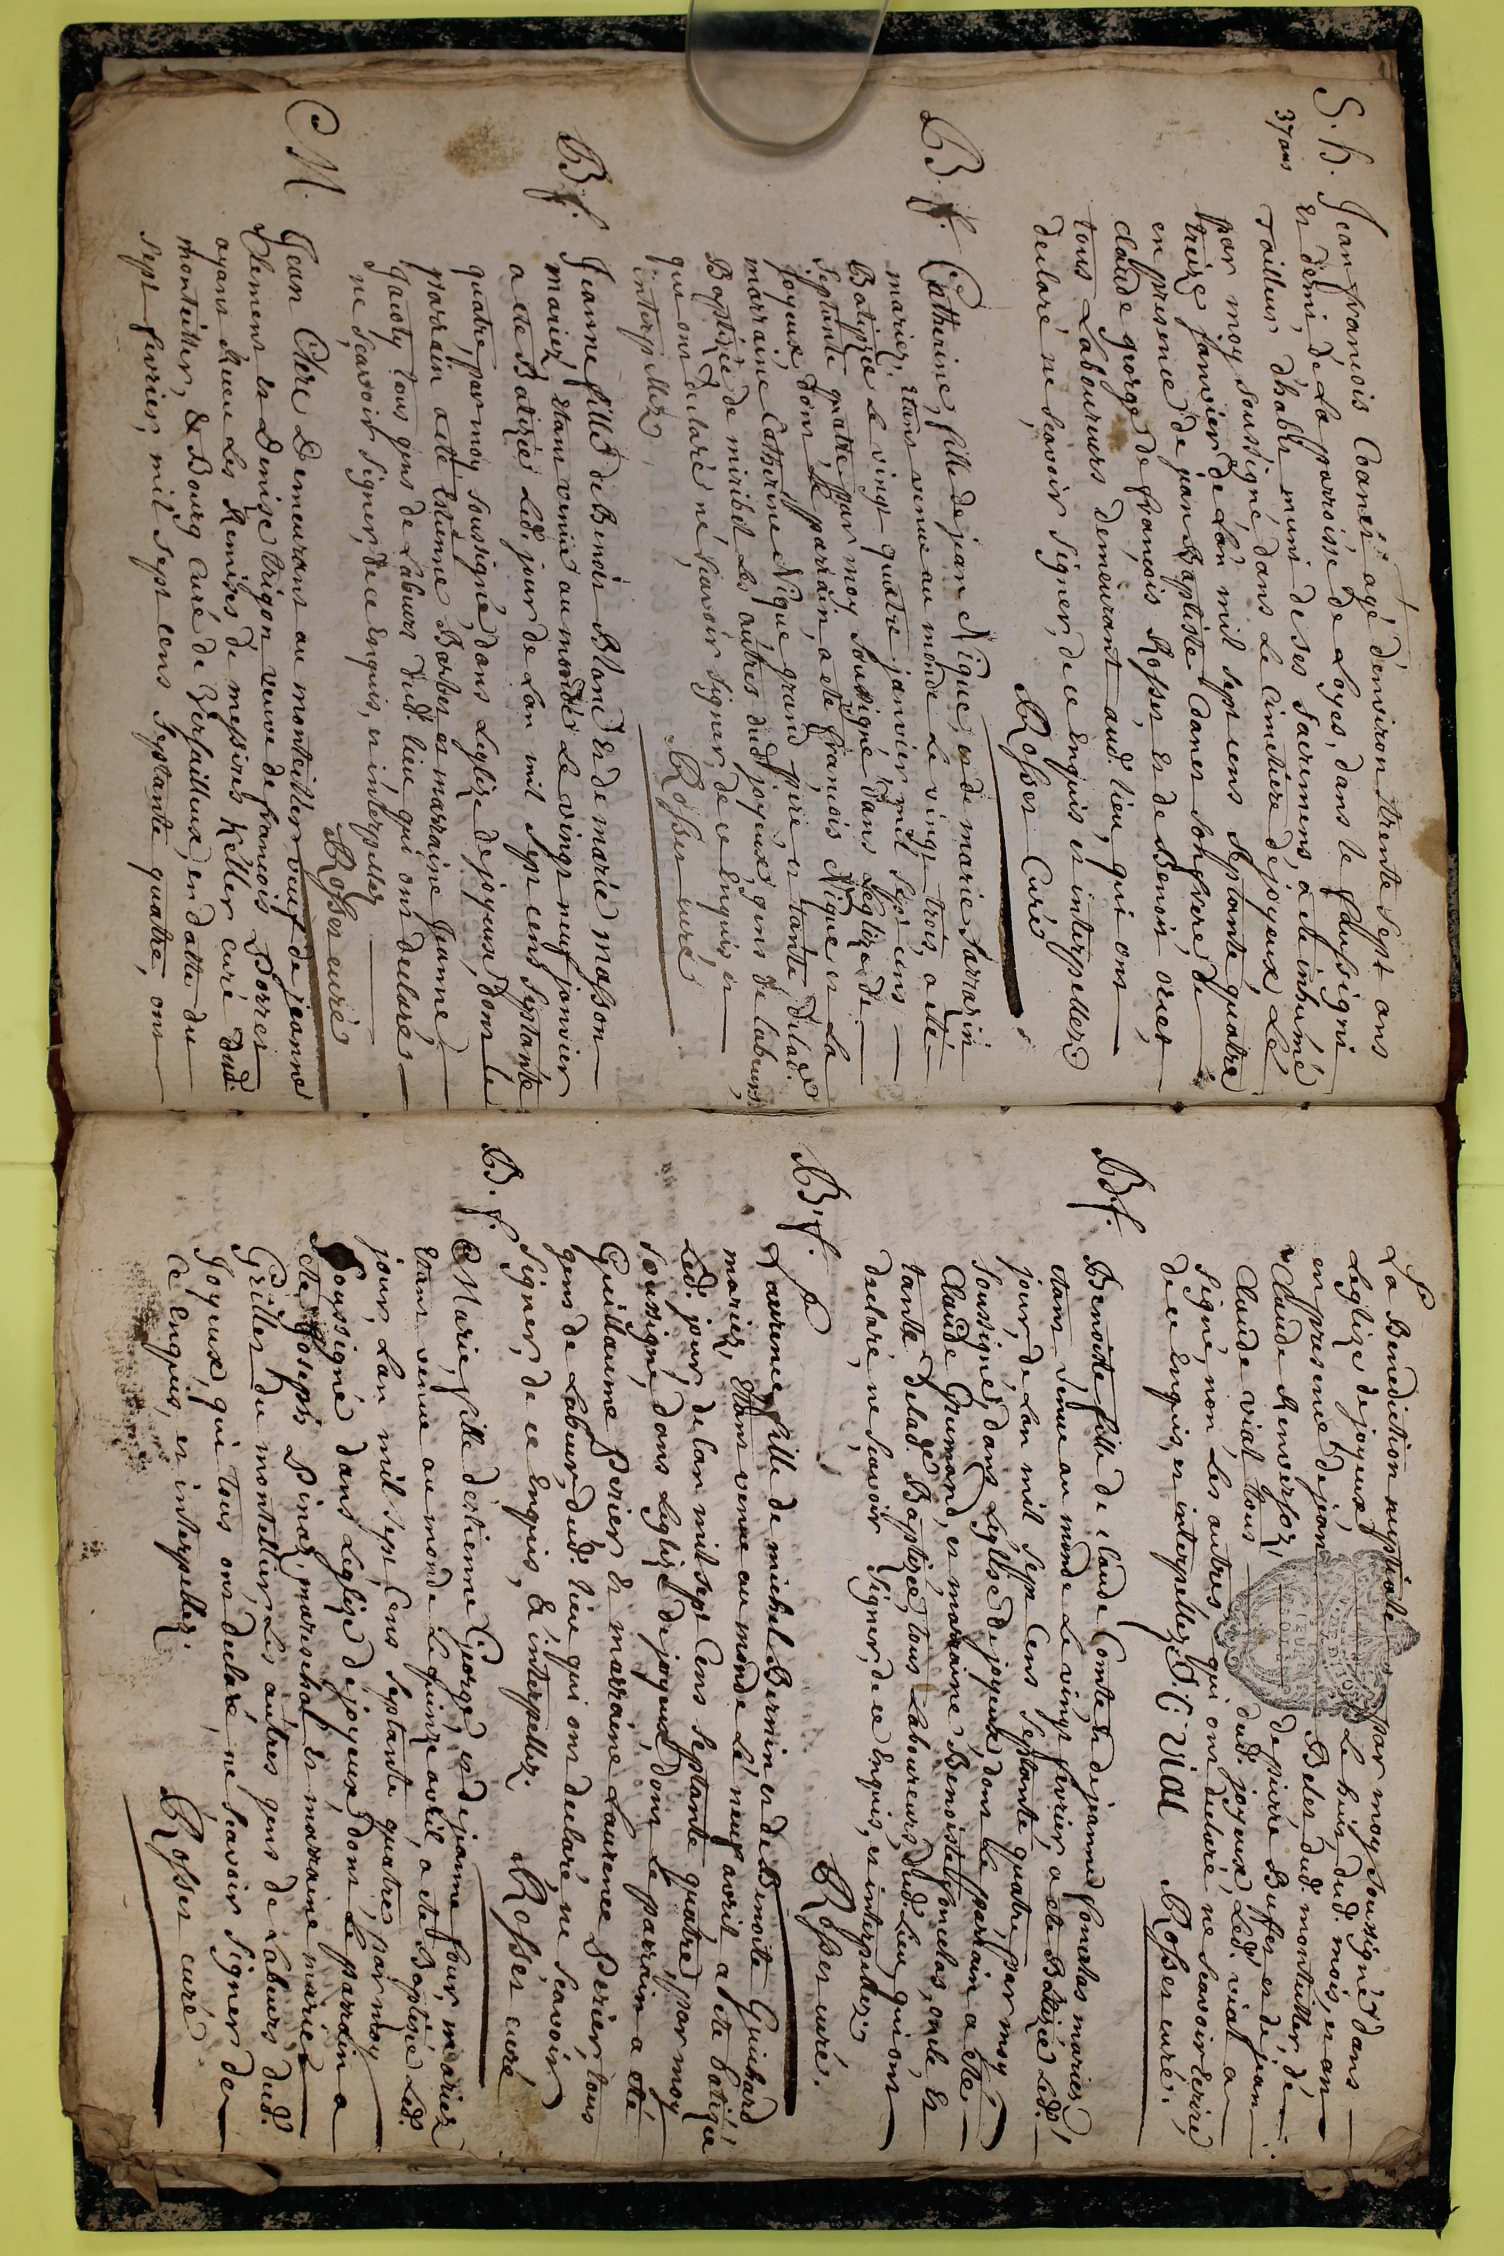 S. h. Jean francois Caanet agé denviron trente sept ans
37 ans et demi de La parroisse de Loyes, dans le faussigni
Tailleur d'habit muni de ses sacremens, a ete inhumé
par moy soussigné dans Le cimetiere de joyeux Le
treize janvier de Lan mil sept cens septante quatre
en presence de jean Baptiste Caanet son frere de
claude george de francois Rosset et de Benoit
tous Laboureurs demeurant aud. lieu, qui ont
declaré ne scavoir signer, de ce Enquis et interpellez
Rosset Curé
B. f. Catherine, fille de jean Nique, et de marie Sarrasin
mariez, etant venue au monde Le vingt trois, a eté
Batizée Le vingt quatre janvier mil sept cens
septante quatre par moy soussigné dans Leglize de
joyeux dont Le parrain a ete francois Nique et La
marraine Catherine Nique grand pere et tante de lad.
Baptizée de miribel Les autres dud. joyeux, gens de labeurs
qui ont declaré ne scavoir signer, de ce Enquis et
interpellez
Rosset curé
B. f. Jeanne fille de Benoit Blanc et de marie masson
mariez, etant venüe au monde Le vingt neuf janvier
a ete Batizée Led. jour de Lan mil sept cens septante
quatre, par moy soussigné, dans Leglize de joyeux, dont le
parrain a eté Estienne Barbet et marraine Jeanne
Jacoty tous gens de Labeurs dud. lieu, qui ont declaré
ne scavoir signer, de ce Enquis, et interpellez
Rosset curé
M. Jean Clerc Demeurant au monteillier veuf de jeanne
Clement et Denise trigon veuve de francois Porret
ayant Receu Les Remises de messires Keller curé dud.
monteillier, & Bourg curé de Versailleux, en datte du
sept fevrier, mil sept cens septante quattre, ont
La Benediction nuptiale par moy soussigné dans
Leglize de joyeux Le huit dud. mois, et an
en presence de jean Bales, dud. monteiller, de
Claude Renversoz, de pierre Buffet et de jean
Claude vial tous dud. joyeux, Led. vial a
signé, non Les autres, qui ont declaré ne scavoir Ecrire
de ce Enquis, et interpellez J. C. Vial Rosset curé.
B. f. Benoiste fille de Claude Comte et de jeanne mariez
etant venue au monde Le vingt fevrier, a ete Batizée Led.
jour, de Lan mil sept Cens septante quatre, par moy
soussigné, dans Leglise de joyeux dont Le parrain a ete
Claude Grumond, et marraine Benoiste oncle et
tante de lad. Baptizée, tous Laboureurs dud. Lieu, qui ont
declaré, ne scavoir signer, de ce Enquis, et interpellez
Rosset curé.
B. f. Laurence fille de michel Bernin et de Benoite Guichard
mariez, etant venue au monde Le neuf avril a ete batizée
Led. jour, de Lan mil sept Cens septante quatre, par moy
soussigné, dans Leglize de joyeux dont Le parrain a eté
Guillaume Perier et marraine Laurence Perier, tous
gens de Labeur, dud. lieu qui ont declaré, ne scavoir
signer, de ce Enquis, & interpellez.
Rosset curé
B. f. Marie, fille d'estienne George, et de jeanne mariez
etant venue au monde Le quinze avril, a ete Baptizée Led.
jour, Lan mil sept Cens septante quatre, par moy
soussigné dans Leglize de joyeux dont Le parrain a
ete joseph Pinaz, mareschal et marraine marie
Grillet du monteillier, Les autres gens de Labeurs dud.
Joyeux, qui tous ont declaré, ne scavoir signer de
ce Enquis, et interpellez.
Rosset curé.